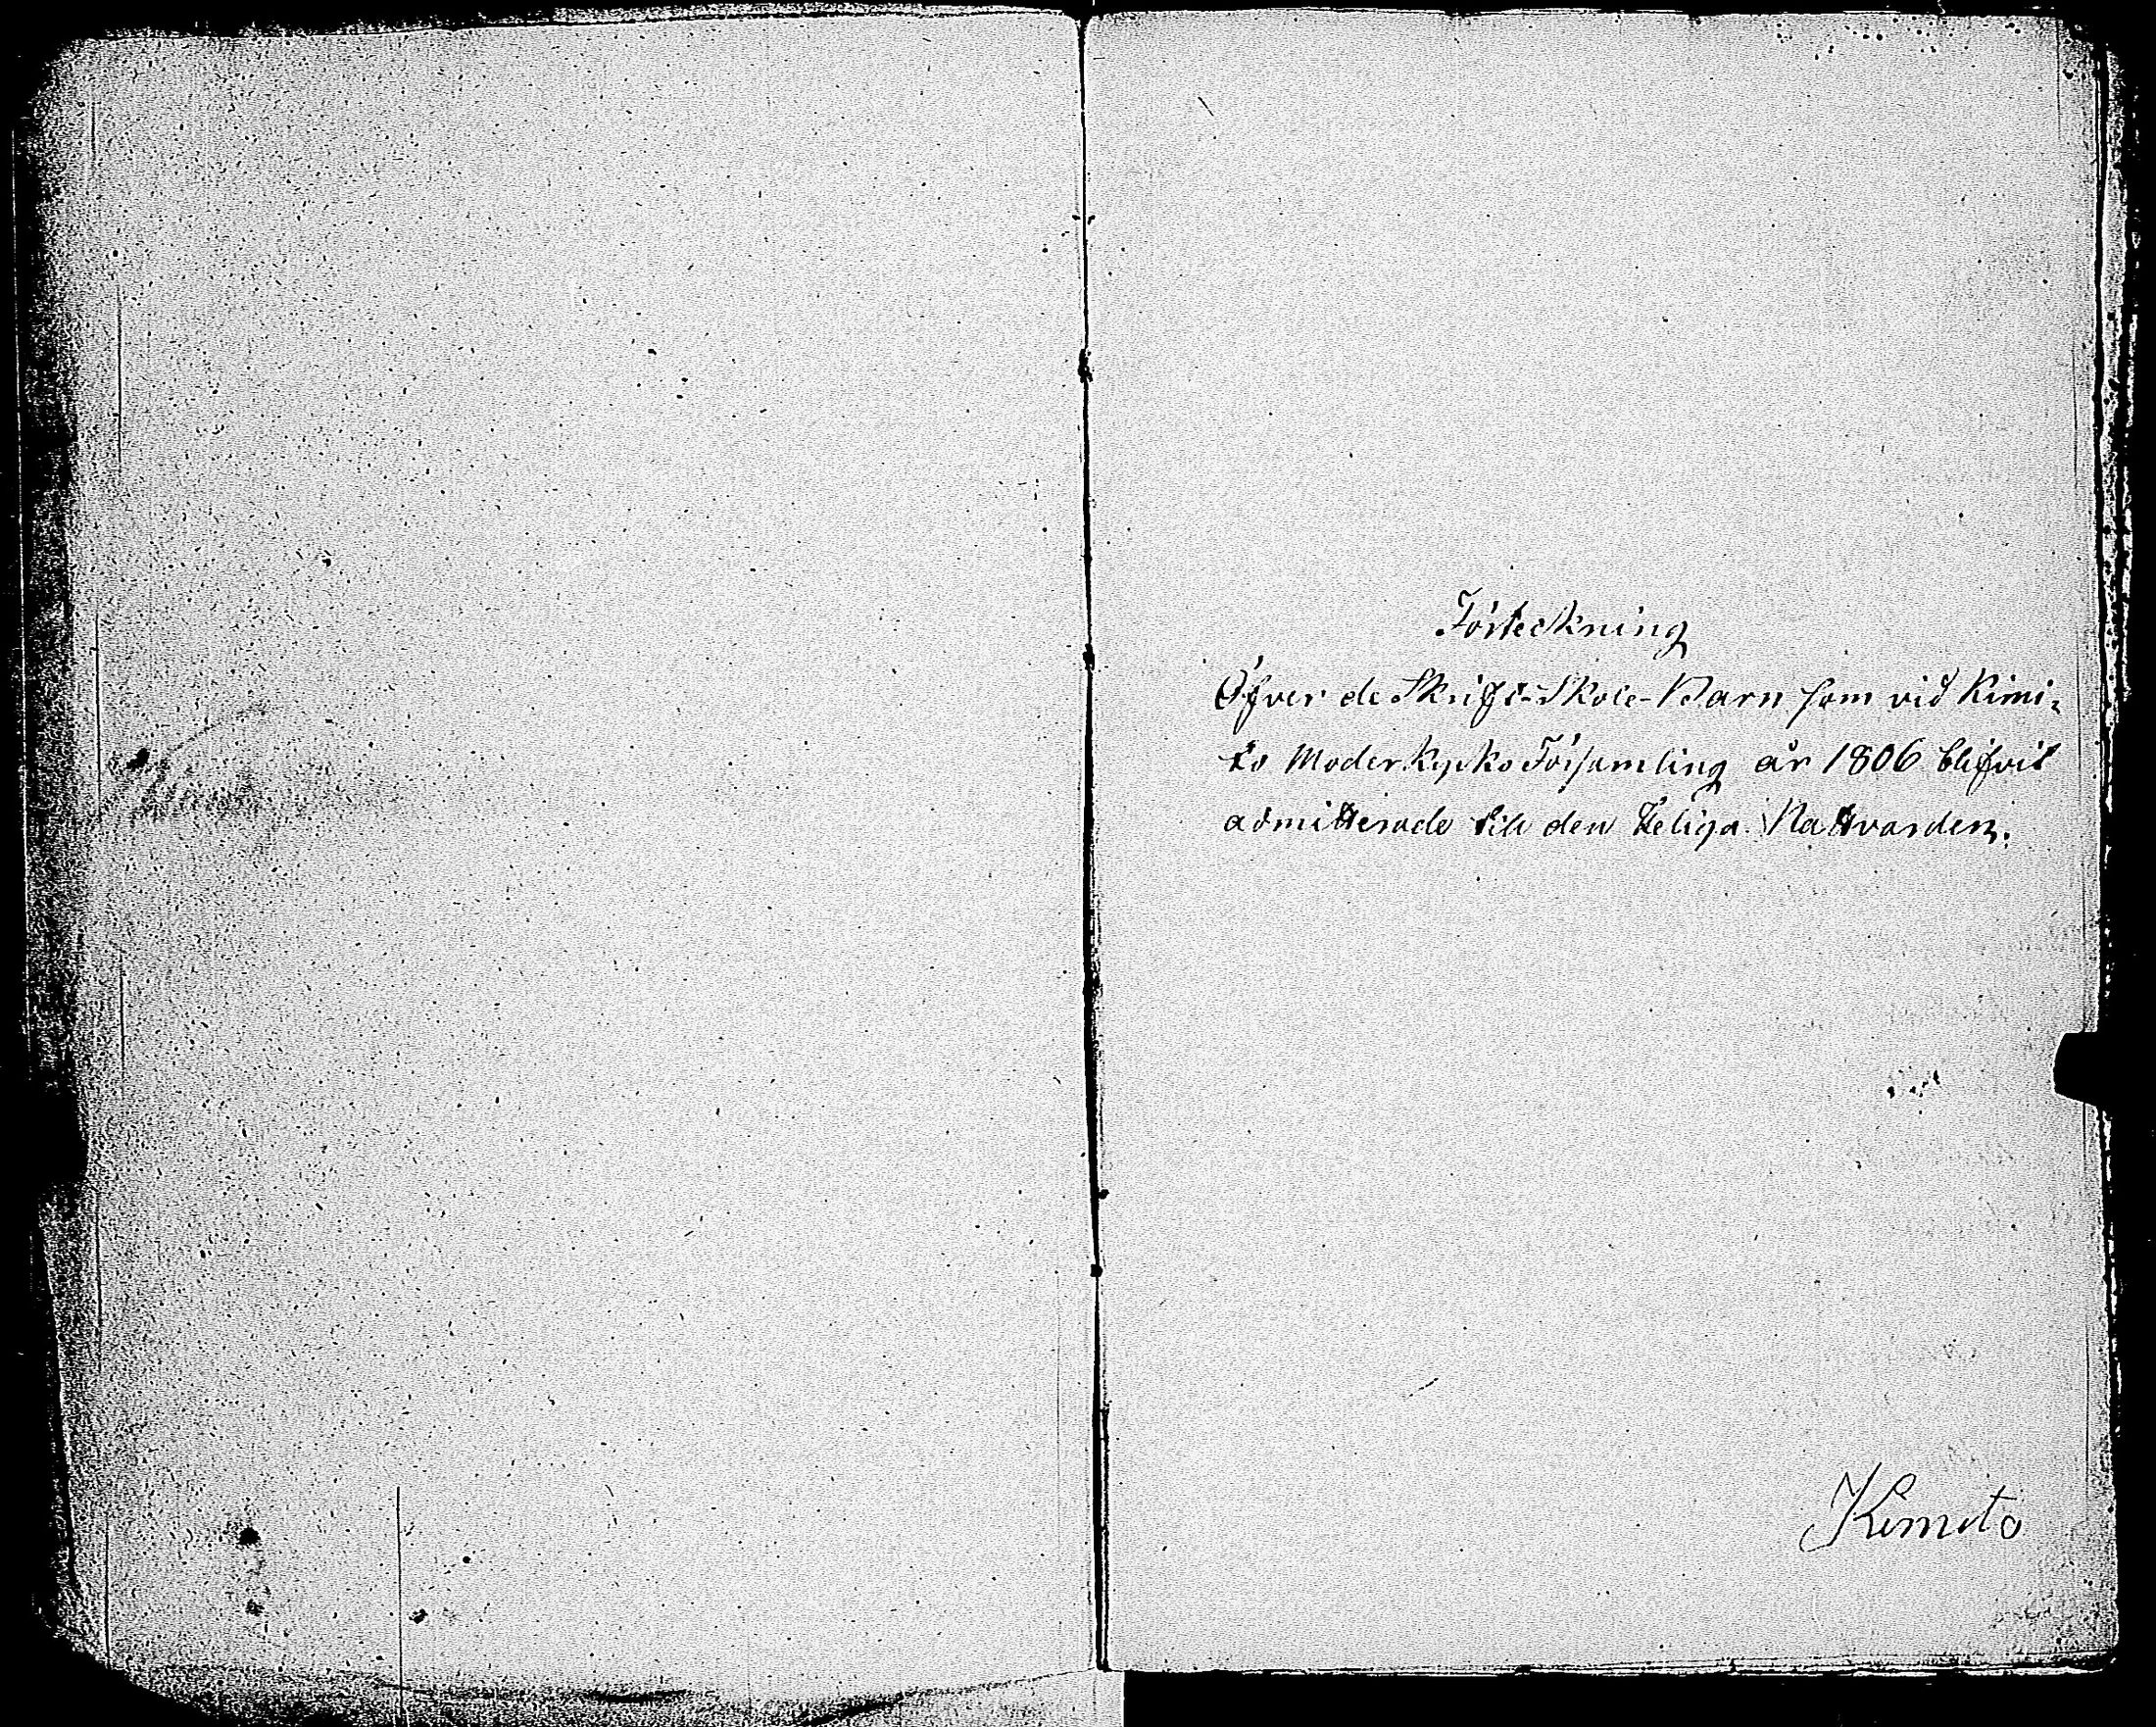 Förteckning
Öfver de Skrift-Skole-Barn som vid Kimi-
to Moderkyrko Församling år 1806 blifvit
admitterade till den Heliga Nattvarden.
Kimito